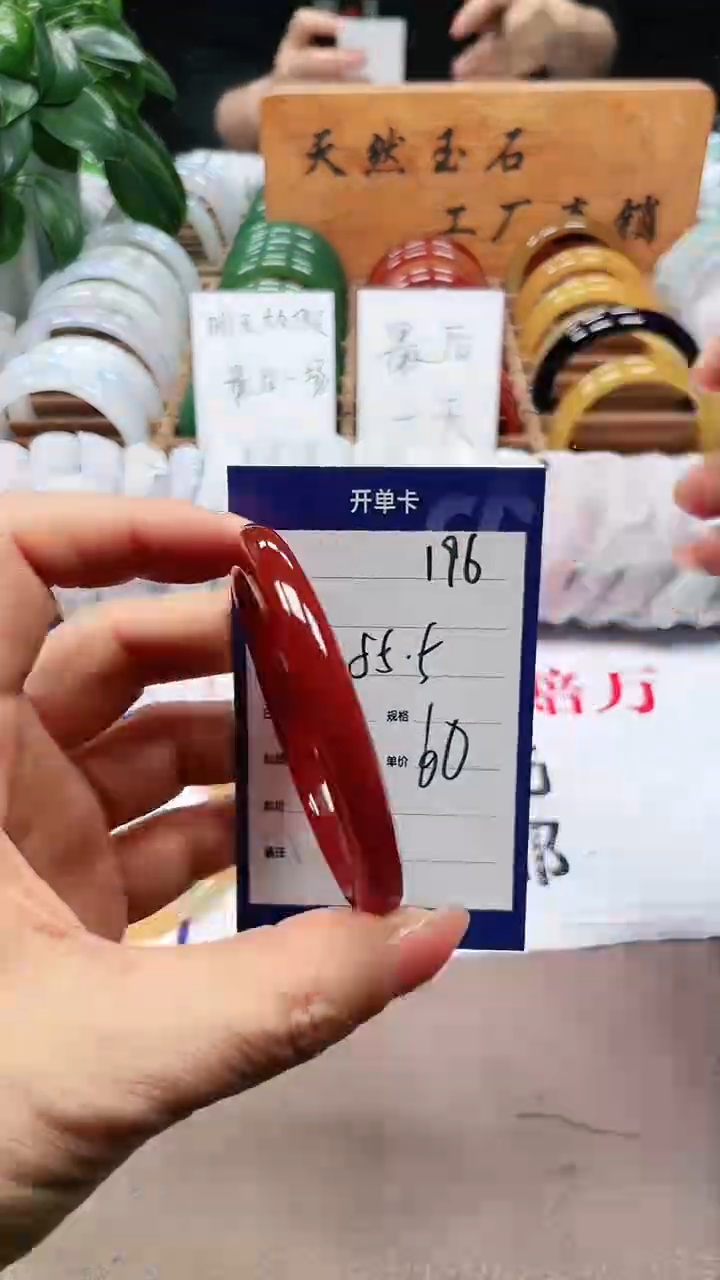 天然玉石
工厂直销
明天放假
最后一场
最后
一天
开单卡
196
85.5
规格
单价 60
备注